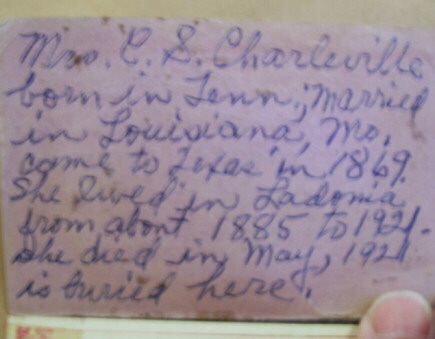 Mrs. C. S. Charleville
born in Tenn.; Married
in Louisiana, Mo.
came to Texas in 1869.
She lived in Ladonia
from about 1885 to 1921.
She died in May, 1921
is buried here.